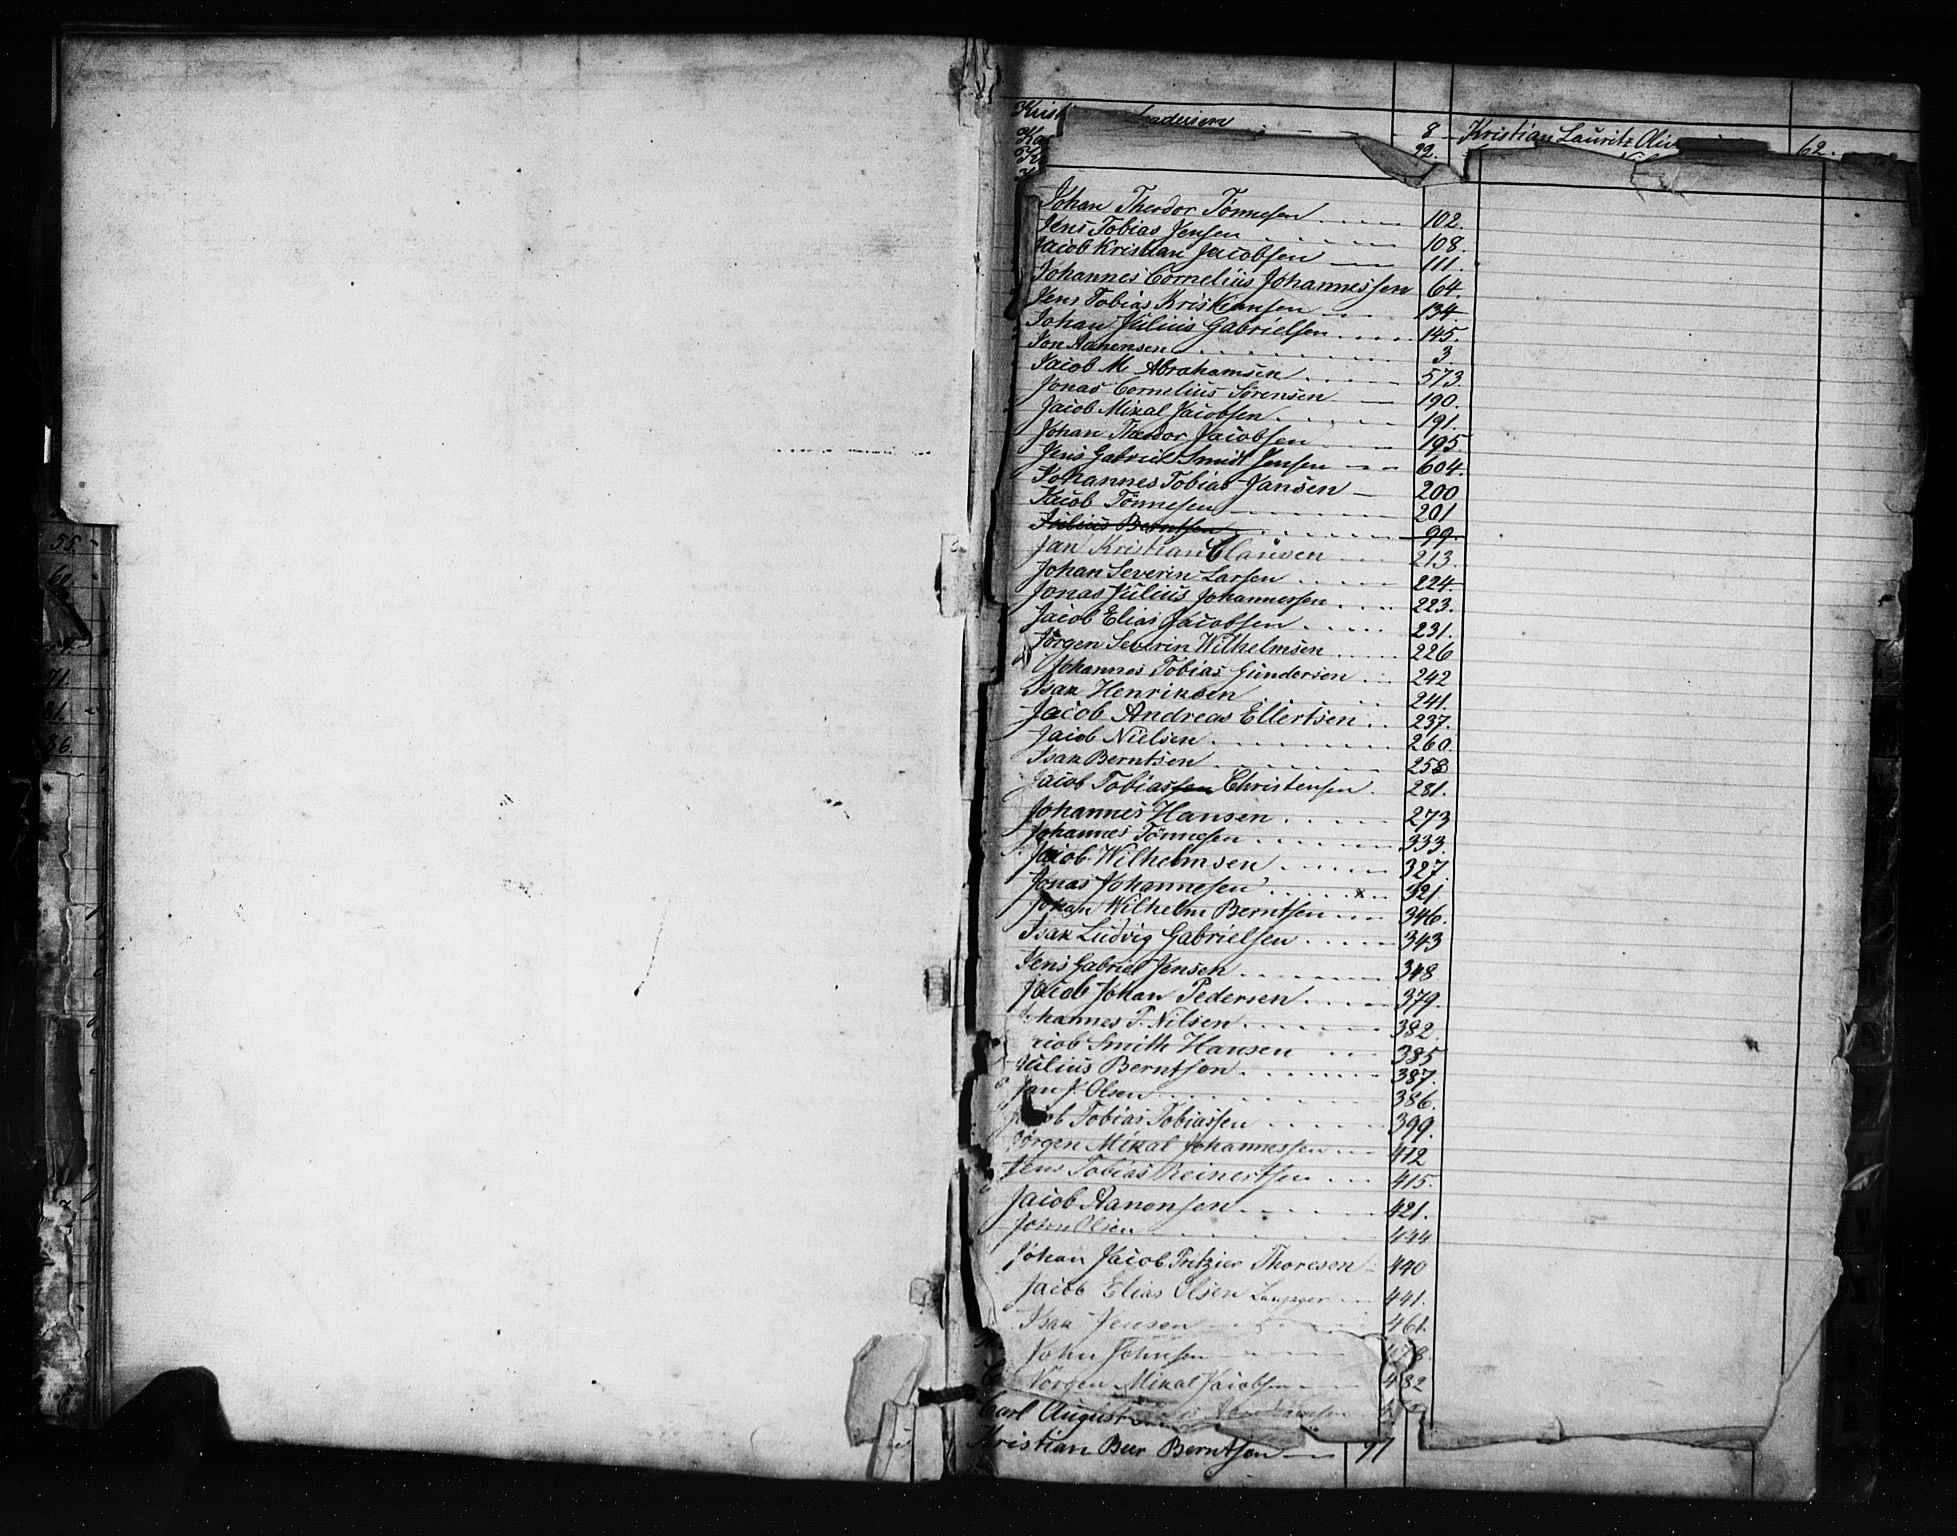 55.
60.
71.
81.
86.
Krist andersen 8 Kristian Lauritz 62.
Ka 92.
Johan Theodor Tönnesen 102.
Jens Tobias Jensen 108.
Jacob Kristian Jacobsen 111.
Johannes Cornelius Johannessen 64.
Jens Tobias Kristiansen 134.
Johan Julius Gabrielsen 145.
Jon Aanensen 3.
Jacob M. Abrahamsen 573.
Jonas Cornelius Sörensen 190.
Jacob Mikal Jacobsen 191.
Johan Theodor Jacobsen 195.
Jens Gabriel Smidt Jensen 604.
Johannes Tobias Jansen 200
Jacob Tönnesen 201
Julius Berntsen 99.
Jan Kristian Clausen 213.
Johan Severin Larsen 224.
Jonas Julius Johannessen 223.
Jacob Elias Jacobsen 231.
Jörgen Severin Wilhelmsen 226
Johannes Tobias Gundersen 242
Isak Henriksen 241.
Jacob Andreas Ellertsen 237.
Jacob Nielsen 260.
Isak Berntsen 258
Jacob Tobiassen Christensen 281.
Johannes Hansen 273
Johannes Tönnesen 333.
Jacob Wilhelmsen 327.
Jonas Johannesen x 321
Johan Wilhelm Berntsen 346.
Isak Ludvig Gabrielsen 343
Jens Gabriel Jensen 348.
Jacob Johan Pedersen 379.
hannes T. Nilsen 382.
acob Smith Hansen 385
Julius Berntsen 387.
Jan J. Olsen 386.
Jacob Tobias Tobiassen 399.
Jörgen Mikal Johannessen 412
Jens Tobias Reinertsen 415.
Jacob Aanonsen 421.
John Olsen 444
Johan Jacob Fritzier Thoresen 440
Jacob Elias Olsen 441.
Isak Jensen 461.
John Johnsen 478.
Jörgen Mikal Jacobsen 482
Carl August
Kristian Beer Berntsen 97